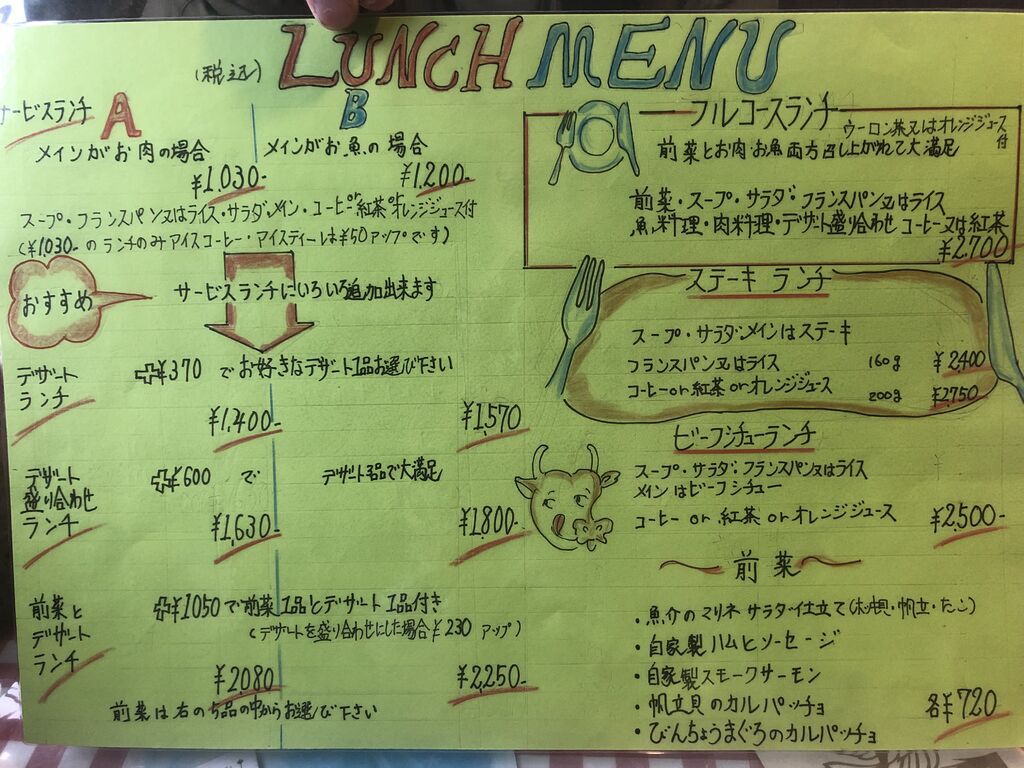 LUNCH MENU
(税込)
サービスランチ A
メインがお肉の場合
¥1,030-
B
メインがお魚の場合
¥1,200-
スープ・フランスパン又はライス・サラダ・メイン・コーヒーor紅茶orオレンジジュース付
(¥1,030-のランチのみアイスコーヒー・アイスティーは¥50アップです)
おすすめ
サービスランチにいろいろ追加出来ます
デザート
ランチ
¥370 でお好きなデザート1品お選び下さい
¥1,400-
¥1,570
デザート
盛り合わせ
ランチ
¥600 で デザート3品で大満足
¥1,630-
¥1,800-
前菜と
デザート
ランチ
¥1050で前菜1品とデザート1品付き
(デザートを盛り合わせにした場合¥230アップ)
¥2,080
¥2,250-
前菜は右の5品の中からお選び下さい
フルコースランチ
ウーロン茶又はオレンジジュース
付
前菜とお肉・お魚両方召し上がれて大満足
前菜・スープ・サラダ・フランスパン又はライス
魚料理・肉料理・デザート盛り合わせ コーヒー又は紅茶
¥2,700
ステーキ ランチ
スープ・サラダ・メインはステーキ
フランスパン又はライス 160g ¥2,400
コーヒーor紅茶orオレンジジュース 200g ¥2,750
ビーフシチューランチ
スープ・サラダ・フランスパン又はライス
メインはビーフシチュー
コーヒー or 紅茶 or オレンジジュース ¥2,500-
〜前菜〜
・魚介のマリネ サラダ仕立て(・帆立・たこ)
・自家製ハムとソーセージ
・自家製スモークサーモン
・帆立貝のカルパッチョ
・びんちょうまぐろのカルパッチョ
各¥720